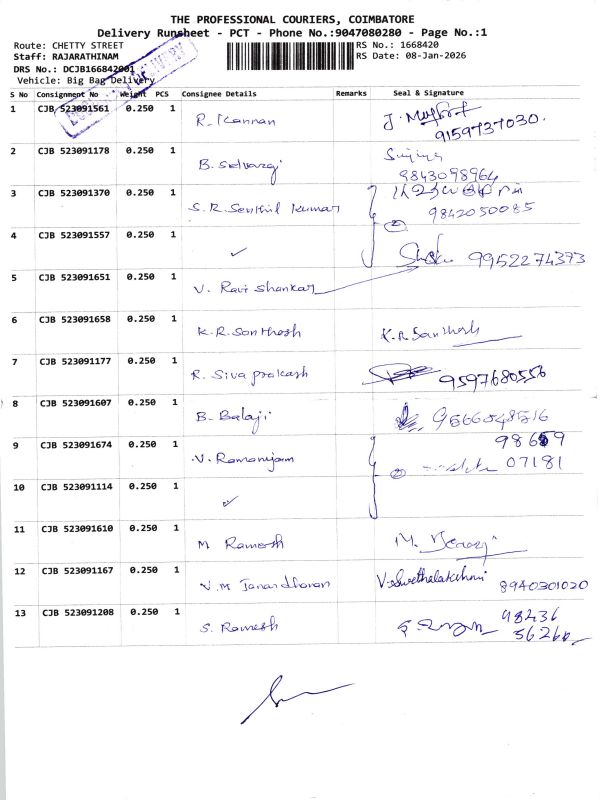 THE PROFESSIONAL COURIERS, COIMBATORE
Delivery Runsheet - PCT - Phone No.:9047080280 - Page No.:1
Route: CHETTY STREET
RS No.: 1668420
Staff: RAJARATHINAM
RS Date: 08-Jan-2026
DRS No.: DCJB166842001
Vehicle: Big Bag Delivery
DELIVERY
S No Consignment No Weight PCS Consignee Details Remarks Seal & Signature
1 CJB 523091561 0.250 1 R. Kannan J.
9159737030.
2 CJB 523091178 0.250 1 B. Selvaraj
9843098964
3 CJB 523091370 0.250 1 S.R. Senthil Kumar
9842050085
2
4 CJB 523091557 0.250 1 ✓ 9952274373
5 CJB 523091651 0.250 1 V. Ravi Shankar
6 CJB 523091658 0.250 1 K.R. Santhosh K.R. Santhosh
7 CJB 523091177 0.250 1 R. Siva prakash 9597680556
8 CJB 523091607 0.250 1 B. Balaji 9566048516
9 CJB 523091674 0.250 1 V. Ramanujam 98659
2 07181
10 CJB 523091114 0.250 1 ✓
11 CJB 523091610 0.250 1 M Ramesh M.
12 CJB 523091167 0.250 1 V.M Janardhanan V. Swethalakshmi 8940301020
13 CJB 523091208 0.250 1 S. Ramesh 98436
56260